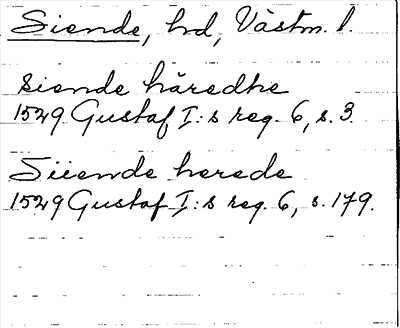 Siende, hd, Västm. l.
Siende häredhe
1529 Gustaf I:s reg. 6, s. 3.
Siiende herede
1529 Gustaf I:s reg. 6, s. 179.